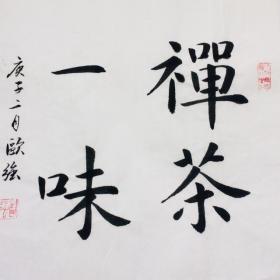 禪茶
一味
庚子二月歐強